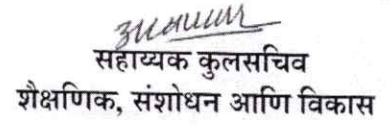 सहाय्यक कुलसचिव
शैक्षणिक, संशोधन आणि विकास